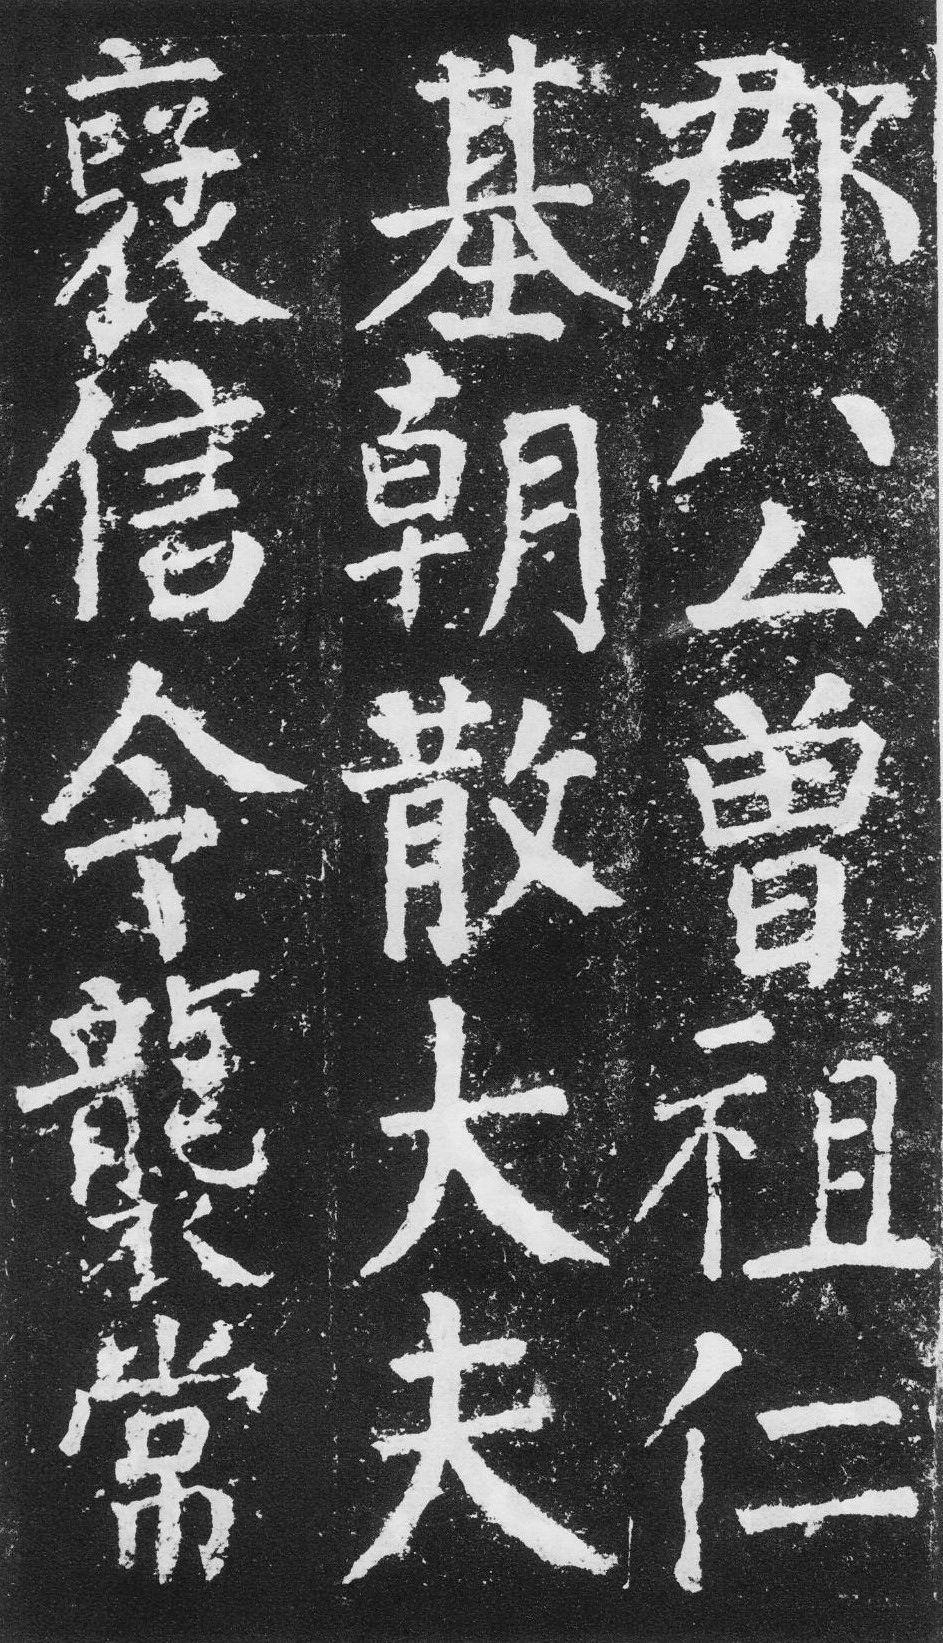 郡公曾祖仁
基朝散大夫
襃信令襲常